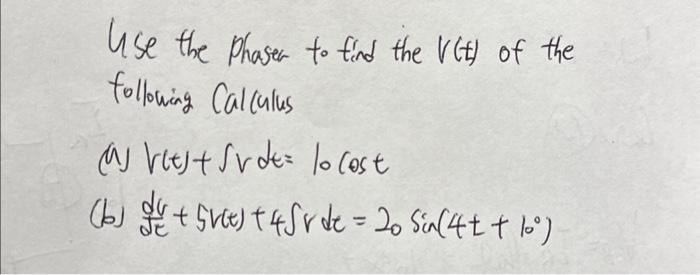 Use the Phaser to find the V(t) of the
following Calculus
(a) V(t) + ∫v dt = 10 cos t
(b) dv/dt + 5v(t) + 4∫v dt = 20 Sin(4t + 10°)